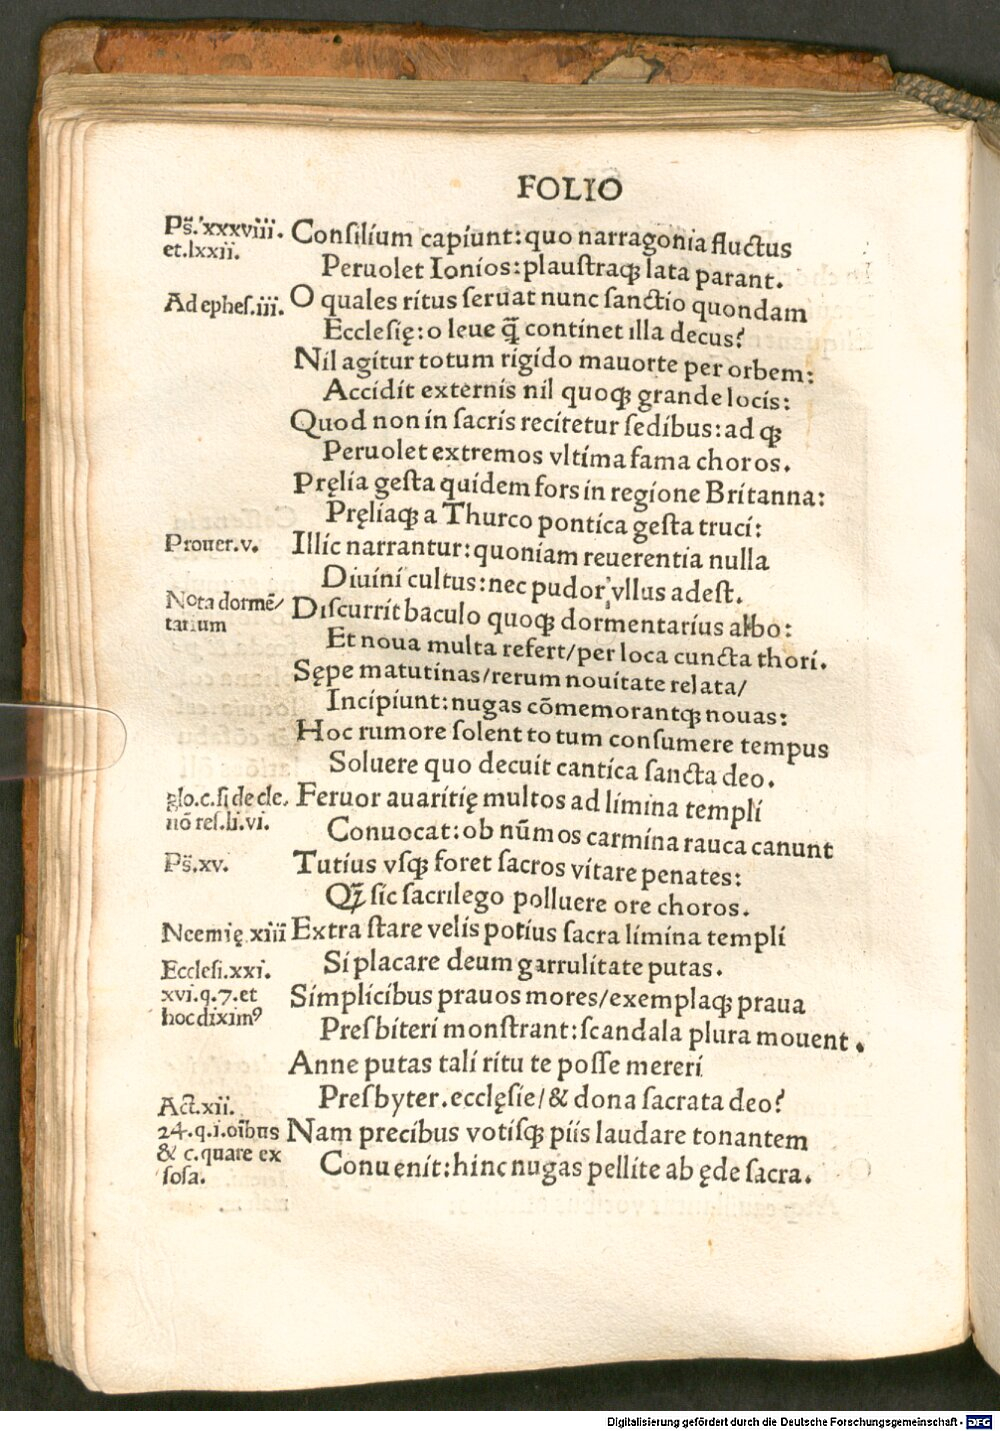 FOLIO
Ps̃.xxxviii.
et.lxxii.
Conſilium capiunt:quo narragonia fluctus
Peruolet Ionios:plauſtraqꝫ lata parant.
Ad epheſ.iii.
O quales ritus ſeruat nunc ſanctio quondam
Eccleſię:o leue q̃ continet illa decus?
Nil agitur totum rigido mauorte per orbem:
Accidit externis nil quoqꝫ grande locis:
Quod non in ſacris recitetur ſedibus:ad qꝫ
Peruolet extremos vltima fama choros.
Pręlia geſta quidem fors in regione Britanna:
Pręliaqꝫ a Thurco pontica geſta truci:
Prouer.v.
Illic narrantur:quoniam reuerentia nulla
Diuini cultus:nec pudor vllus adeſt.
Nota dormẽ/
tarium
Diſcurrit baculo quoqꝫ dormentarius albo:
Et noua multa refert/per loca cuncta thori.
Sępe matutinas/rerum nouitate relata/
Incipiunt:nugas cõmemorantqꝫ nouas:
Hoc rumore ſolent totum conſumere tempus
Soluere quo decuit cantica ſancta deo.
glo.c.ſi de cle.
nõ reſ.li.vi.
Feruor auaritię multos ad limina templi
Conuocat:ob nũmos carmina rauca canunt
Ps̃.xv.
Tutius vſqꝫ foret ſacros vitare penates:
Qꝫ ſic ſacrilego polluere ore choros.
Neemię.xiii
Extra ſtare velis potius ſacra limina templi
Si placare deum garrulitate putas.
Eccleſi.xxi.
xvi.q.7.et
hoc diximꝰ
Simplicibus prauos mores/exemplaqꝫ praua
Preſbiteri monſtrant:ſcandala plura mouent.
Anne putas tali ritu te poſſe mereri
Preſbyter.ecclęſie/& dona ſacrata deo?
Act.xii.
24.q.i.oĩbus
& c.quare ex
ſoſa.
Nam precibus votiſqꝫ piis laudare tonantem
Conuenit:hinc nugas pellite ab ęde ſacra.
Digitalisierung gefördert durch die Deutsche Forschungsgemeinschaft - DFG